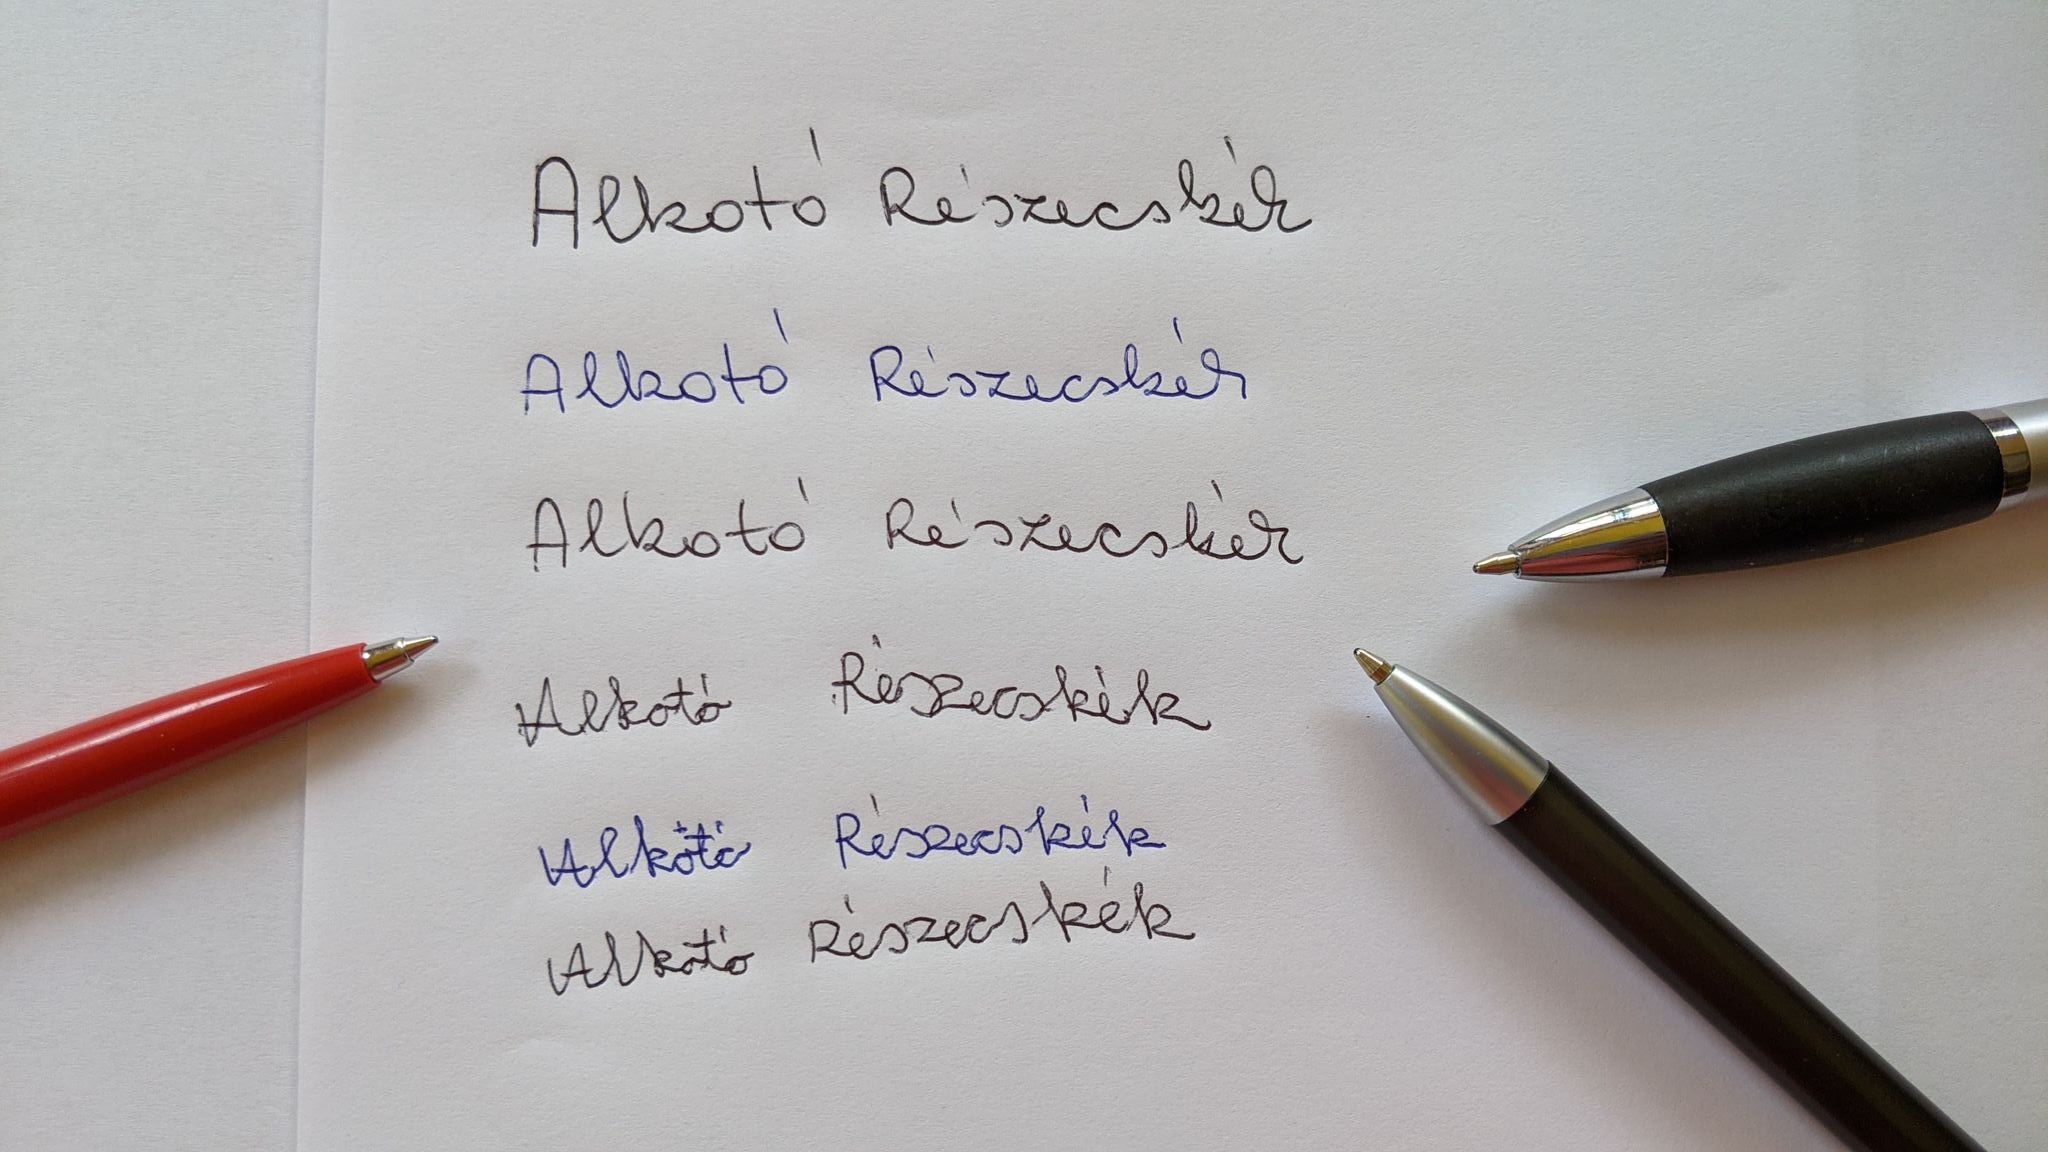 Alkotó Részecskék
Alkotó Részecskék
Alkotó Részecskék
Alkotó Részecskék
Alkotó Részecskék
Alkotó Részecskék